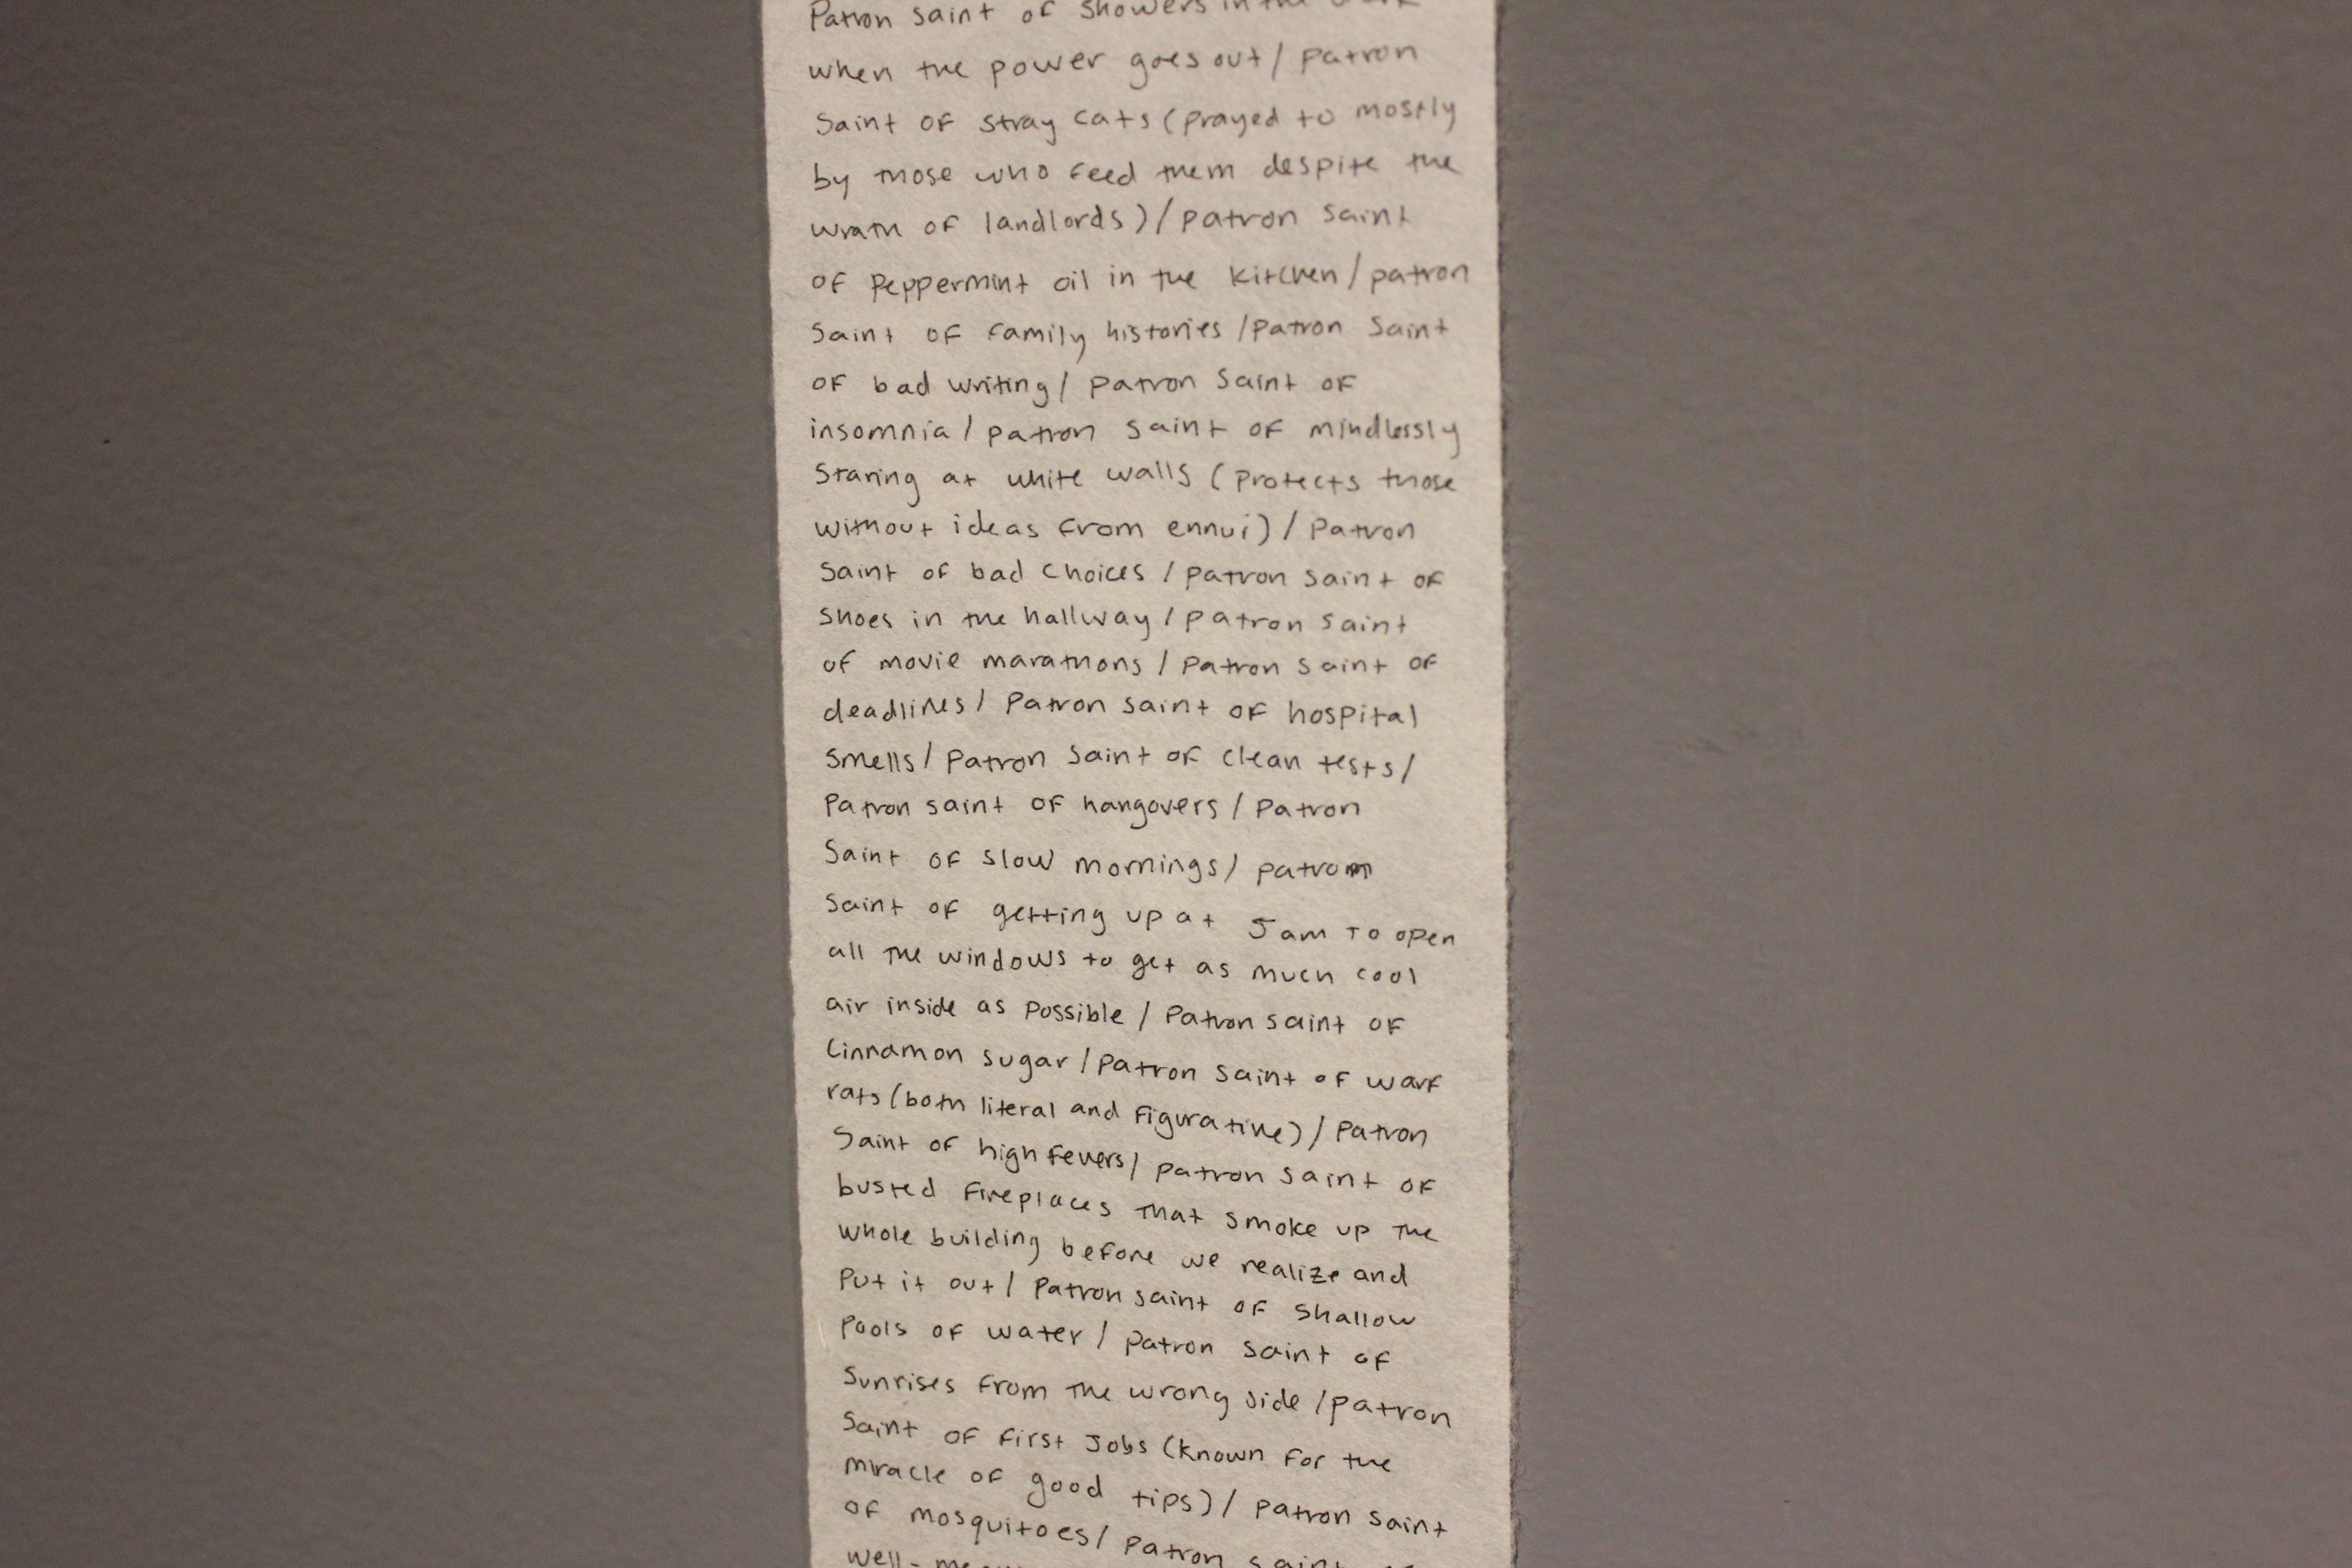 Patron saint of showers in the dark
when the power goes out / patron
saint of stray cats (prayed to mostly
by those who feed them despite the
wrath of landlords) / patron saint
of peppermint oil in the kitchen / patron
saint of family histories / patron saint
of bad writing / patron saint of
insomnia / patron saint of mindlessly
staring at white walls (protects those
without ideas from ennui) / patron
saint of bad choices / patron saint of
shoes in the hallway / patron saint
of movie marathons / patron saint of
deadlines / patron saint of hospital
smells / patron saint of clean tests /
patron saint of hangovers / patron
saint of slow mornings / patrom
saint of getting up at 5am to open
all the windows to get as much cool
air inside as possible / patron saint of
cinnamon sugar / patron saint of warf
rats (both literal and figurative) / patron
saint of high fevers / patron saint of
busted fireplaces that smoke up the
whole building before we realize and
put it out / patron saint of shallow
pools of water / patron saint of
sunrises from the wrong side / patron
saint of first jobs (known for the
miracle of good tips) / patron saint
of mosquitoes / patron saint of
well-